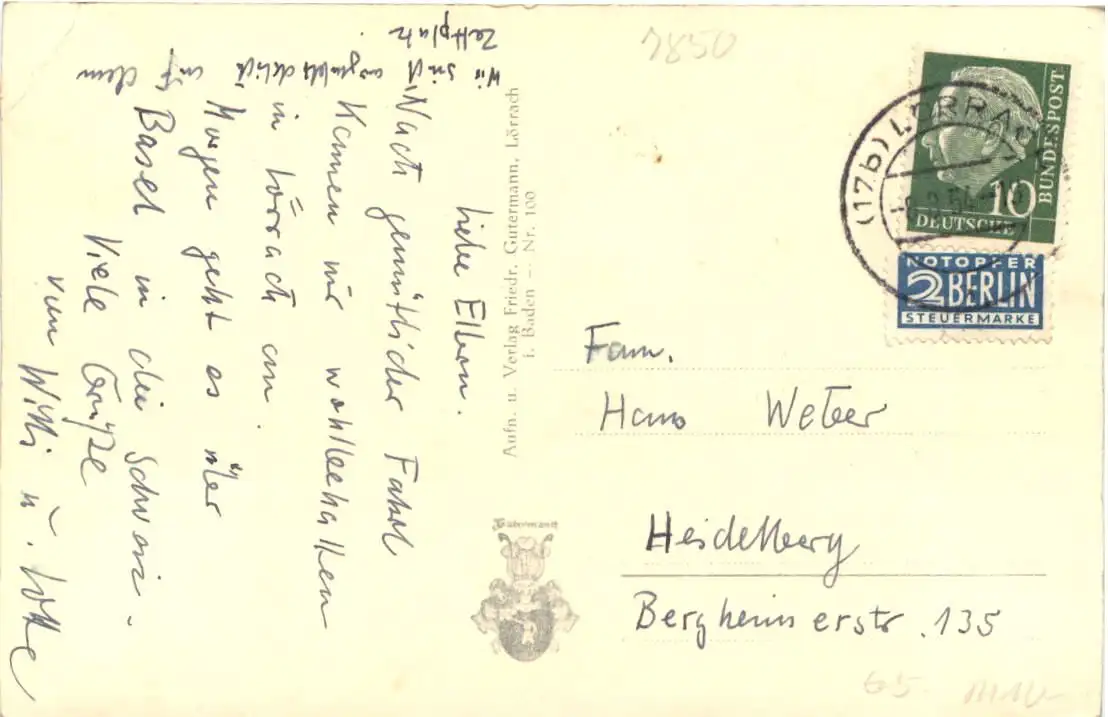 Wir sind augenblicklich auf dem
Zeltplatz
Liebe Eltern.
Nach gemütlicher Fahrt
kamen wir wohlbehalten
in Lörrach an.
Morgen geht es über
Basel in die Schweiz.
Viele Grüße
von Willi u. Lotte
Aufn. u. Verlag Friedr. Gutermann, Lörrach
i. Baden — Nr. 100
Gutermann
7850
(17b) LÖRRACH
54
10
DEUTSCHE
BUNDESPOST
NOTOPFER
2 BERLIN
STEUERMARKE
Fam.
Hans Weber
Heidelberg
Bergheimerstr. 135
65